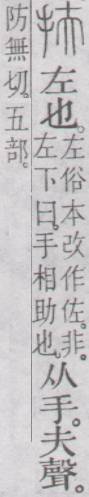 扶左也。左俗本改作佐。非。
左下曰。手相助也。从手。夫聲。
防無切。五部。